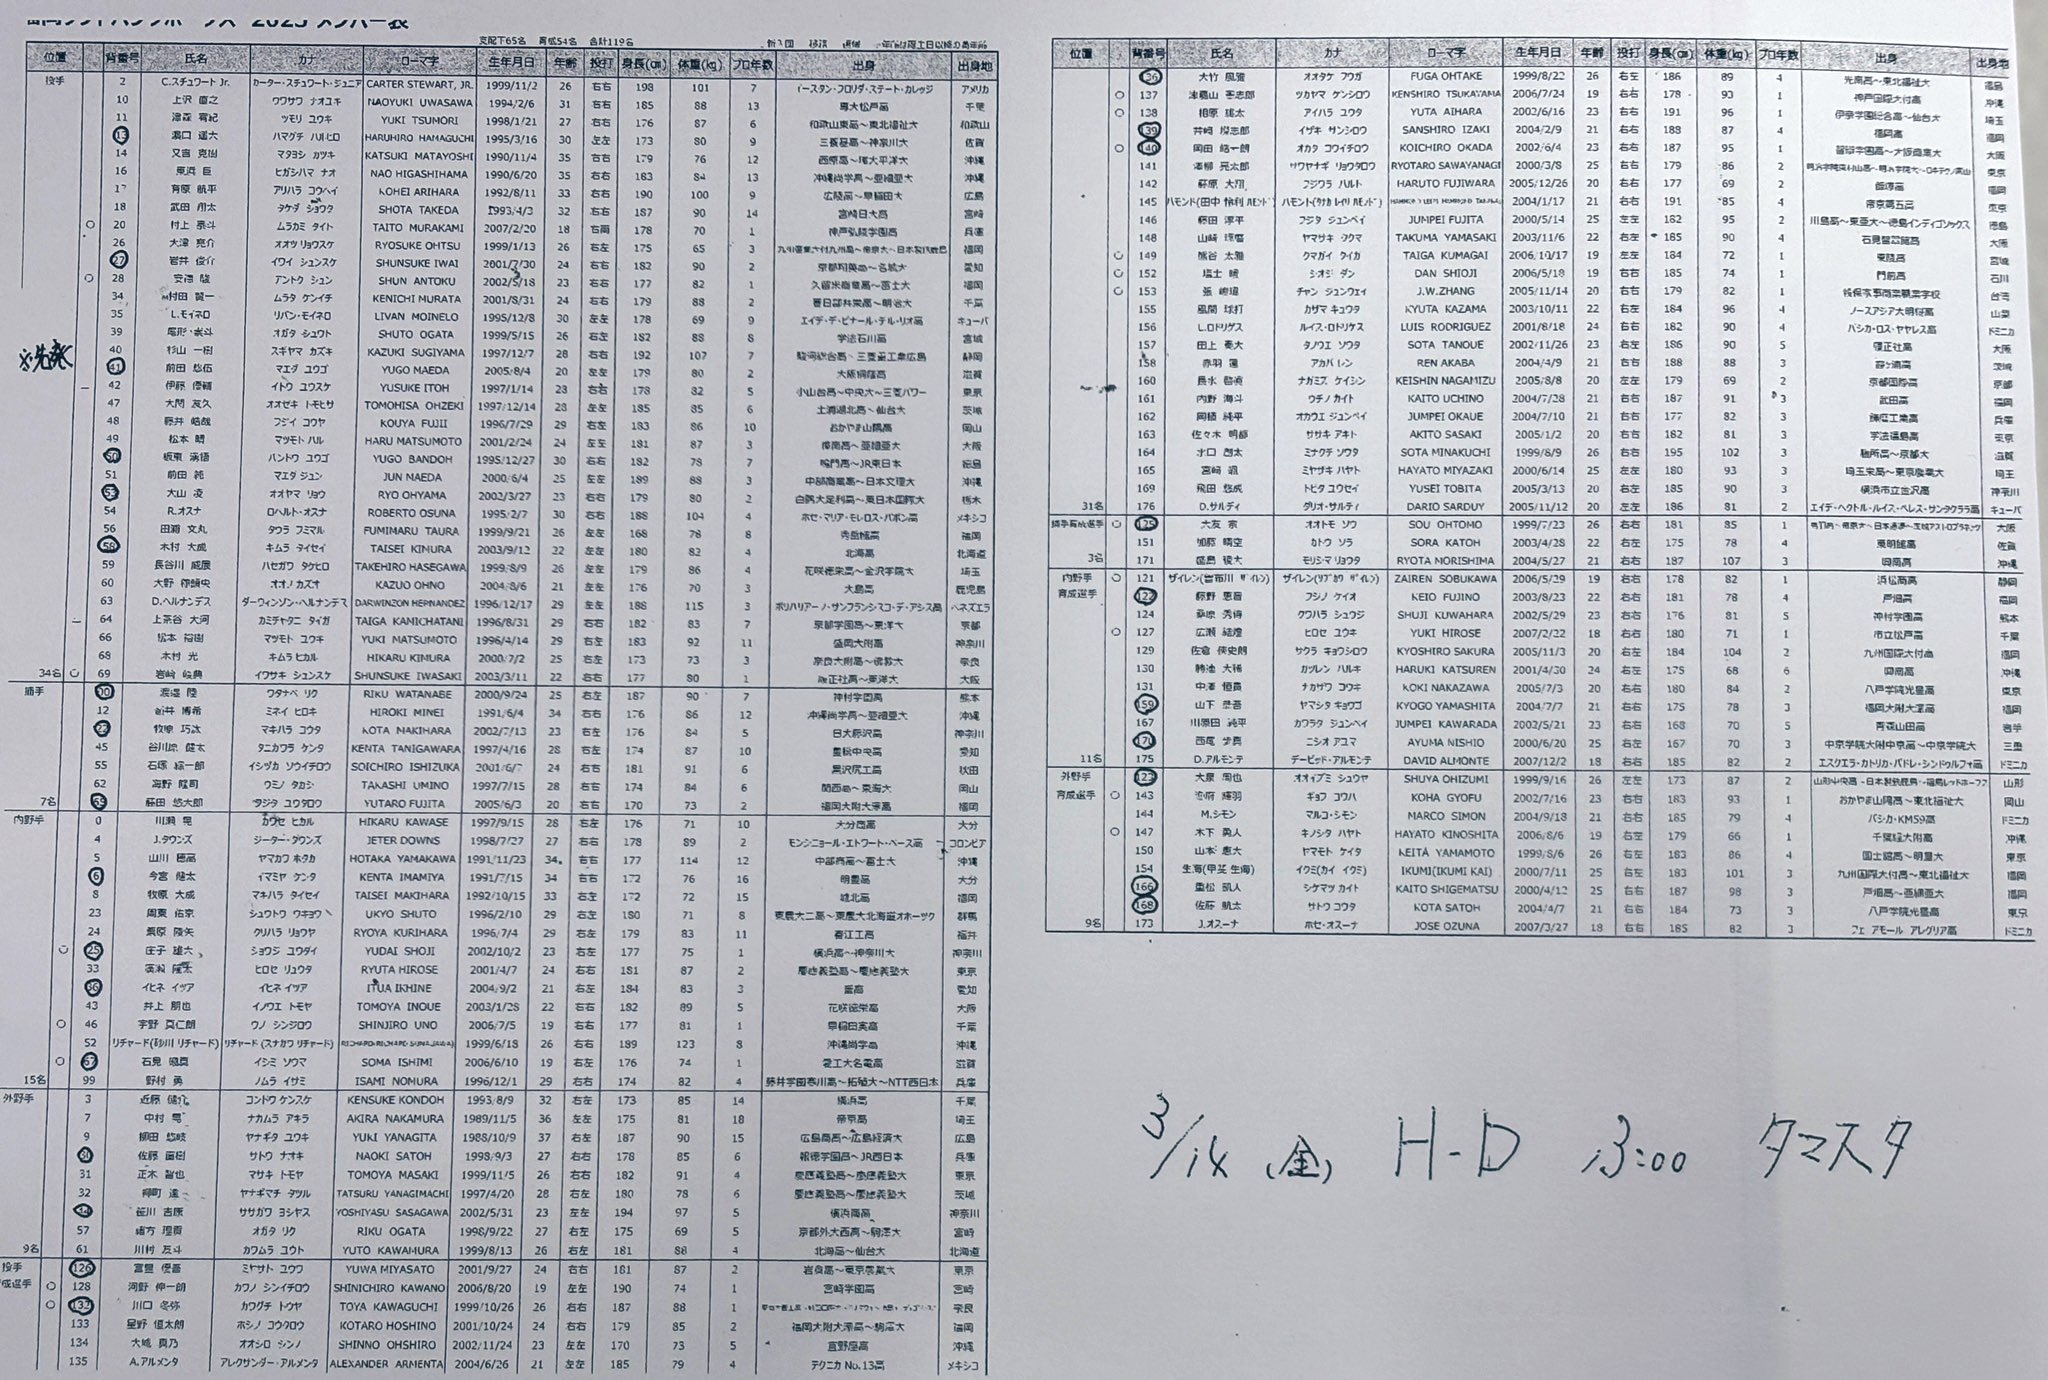 2025 メンバー表
支配下65名 育成54名 合計119名
位置 背番号 氏名 カナ ローマ字 生年月日 年齢 投打 身長(㎝) 体重(kg) プロ年数 出身 出身地
投手 2 C.スチュワート Jr. カーター・スチュワート・ジュニア CARTER STEWART, JR. 1999/11/2 26 右右 198 101 7 イースタン・フロリダ・ステート・カレッジ アメリカ
10 上沢 直之 ウワサワ ナオユキ NAOYUKI UWASAWA 1994/2/6 31 右右 185 88 13 専大松戸高 千葉
11 津森 宥紀 ツモリ ユウキ YUKI TSUMORI 1998/1/21 27 右右 176 87 6 和歌山東高～東北福祉大 和歌山
13 濵口 遥大 ハマグチ ハルヒロ HARUHIRO HAMAGUCHI 1995/3/16 30 左左 173 80 9 三養基高～神奈川大 佐賀
14 又吉 克樹 マタヨシ カツキ KATSUKI MATAYOSHI 1990/11/4 35 右右 179 76 12 西原高～ 沖縄
16 東浜 巨 ヒガシハマ ナオ NAO HIGASHIHAMA 1990/6/20 35 右右 183 84 13 沖縄尚学高～亜細亜大 沖縄
17 有原 航平 アリハラ コウヘイ KOHEI ARIHARA 1992/8/11 33 右右 190 100 9 広陵高～早稲田大 広島
18 武田 翔太 タケダ ショウタ SHOTA TAKEDA 1993/4/3 32 右右 187 90 14 宮崎日大高 宮崎
○ 20 村上 泰斗 ムラカミ タイト TAITO MURAKAMI 2007/2/20 18 右両 178 70 1 神戸弘陵学園高 兵庫
26 大津 亮介 オオツ リョウスケ RYOSUKE OHTSU 1999/1/13 26 右左 175 65 3 福岡
27 岩井 俊介 イワイ シュンスケ SHUNSUKE IWAI 2001/7/30 24 右右 182 90 2 京都翔英高～名城大 愛知
○ 28 安德 駿 アントク シュン SHUN ANTOKU 2002/5/18 23 右右 177 82 1 久留米商業高～富士大 福岡
34 村田 賢一 ムラタ ケンイチ KENICHI MURATA 2001/8/31 24 右右 179 88 2 春日部共栄高～明治大 千葉
35 L.モイネロ リバン・モイネロ LIVAN MOINELO 1995/12/8 30 左左 178 69 9 エイデ・デ・ピナール・デル・リオ高 キューバ
39 尾形 崇斗 オガタ シュウト SHUTO OGATA 1999/5/15 26 右左 182 88 8 学法石川高 宮城
※先発
40 杉山 一樹 スギヤマ カズキ KAZUKI SUGIYAMA 1997/12/7 28 右右 192 107 7 駿河総合高～三菱重工業広島 静岡
41 前田 悠伍 マエダ ユウゴ YUGO MAEDA 2005/8/4 20 左左 179 80 2 大阪桐蔭高 滋賀
42 伊藤 優輔 イトウ ユウスケ YUSUKE ITOH 1997/1/14 28 右右 178 82 5 小山台高～中央大～三菱パワー 東京
47 大関 友久 オオゼキ トモヒサ TOMOHISA OHZEKI 1997/12/14 28 左左 185 85 6 土浦湖北高～仙台大 茨城
48 藤井 皓哉 フジイ コウヤ KOUYA FUJII 1996/7/29 29 右左 183 86 10 おかやま山陽高 岡山
49 松本 晴 マツモト ハル HARU MATSUMOTO 2001/2/24 24 左左 181 87 3 樟南高～亜細亜大 大阪
50 板東 湧梧 バンドウ ユウゴ YUGO BANDOH 1995/12/27 30 右右 182 78 7 鳴門高～JR東日本 徳島
51 前田 純 マエダ ジュン JUN MAEDA 2000/6/4 25 左左 189 88 3 中部商業高～日本文理大 沖縄
53 大山 凌 オオヤマ リョウ RYO OHYAMA 2002/3/27 23 右右 179 80 2 白鷗大足利高～東日本国際大 栃木
54 R.オスナ ロベルト・オスナ ROBERTO OSUNA 1995/2/7 30 右右 188 104 4 ホセ・マリア・モレロス・パボン高 メキシコ
56 田浦 文丸 タウラ フミマル FUMIMARU TAURA 1999/9/21 26 左左 168 78 8 秀岳館高 福岡
58 木村 大成 キムラ タイセイ TAISEI KIMURA 2003/9/12 22 左左 180 82 4 北海高 北海道
59 長谷川 威展 ハセガワ タケヒロ TAKEHIRO HASEGAWA 1999/8/9 26 左左 179 86 4 花咲徳栄高～金沢学院大 埼玉
60 大野 稼頭央 オオノ カズオ KAZUO OHNO 2004/8/6 21 左左 176 70 3 大島高 鹿児島
63 D.ヘルナンデス ダーウィンゾン・ヘルナンデス DARWINZON HERNANDEZ 1996/12/17 29 左左 188 115 3 ボリバリアーノ・サンフランシスコ・デ・アシス高 ベネズエラ
64 上茶谷 大河 カミチャタニ タイガ TAIGA KAMICHATANI 1996/8/31 29 右右 182 83 7 京都学園高～東洋大 京都
66 松本 裕樹 マツモト ユウキ YUKI MATSUMOTO 1996/4/14 29 右左 183 92 11 盛岡大附高 神奈川
68 木村 光 キムラ ヒカル HIKARU KIMURA 2000/7/2 25 右左 173 73 3 奈良大附高～佛教大 奈良
34名 ○ 69 岩崎 峻典 イワサキ シュンスケ SHUNSUKE IWASAKI 2003/3/11 22 右左 177 80 1 履正社高～東洋大 大阪
捕手 00 渡邉 陸 ワタナベ リク RIKU WATANABE 2000/9/24 25 右左 187 90 7 神村学園高 熊本
12 嶺井 博希 ミネイ ヒロキ HIROKI MINEI 1991/6/4 34 右右 176 86 12 沖縄尚学高～亜細亜大 沖縄
22 牧原 巧汰 マキハラ コウタ KOTA MAKIHARA 2002/7/13 23 右左 176 84 5 日大藤沢高 神奈川
45 谷川原 健太 タニガワラ ケンタ KENTA TANIGAWARA 1997/4/16 28 右左 174 87 10 豊橋中央高 愛知
55 石塚 綜一郎 イシヅカ ソウイチロウ SOICHIRO ISHIZUKA 2001/6/7 24 右右 181 91 6 黒沢尻工高 秋田
62 海野 隆司 ウミノ タカシ TAKASHI UMINO 1997/7/15 28 右右 174 84 6 関西高～東海大 岡山
7名 65 藤田 悠太郎 フジタ ユウタロウ YUTARO FUJITA 2005/6/3 20 右右 170 73 2 福岡大附大濠高 福岡
内野手 0 川瀬 晃 カワセ ヒカル HIKARU KAWASE 1997/9/15 28 右左 176 71 10 大分商高 大分
4 J.ダウンズ ジーター・ダウンズ JETER DOWNS 1998/7/27 27 右右 178 89 2 モンシニョール・エドワード・ペース高 コロンビア
5 山川 穂高 ヤマカワ ホタカ HOTAKA YAMAKAWA 1991/11/23 34 右右 177 114 12 中部商高～富士大 沖縄
6 今宮 健太 イマミヤ ケンタ KENTA IMAMIYA 1991/7/15 34 右右 172 76 16 明豊高 大分
8 牧原 大成 マキハラ タイセイ TAISEI MAKIHARA 1992/10/15 33 右左 172 72 15 城北高 福岡
23 周東 佑京 シュウトウ ウキョウ UKYO SHUTO 1996/2/10 29 右左 180 71 8 東農大二高～東農大北海道オホーツク 群馬
24 栗原 陵矢 クリハラ リョウヤ RYOYA KURIHARA 1996/7/4 29 右左 179 83 11 春江工高 福井
○ 25 庄子 雄大 ショウジ ユウダイ YUDAI SHOJI 2002/10/2 23 右左 177 75 1 横浜高～神奈川大 神奈川
33 廣瀨 隆太 ヒロセ リュウタ RYUTA HIROSE 2001/4/7 24 右右 181 87 2 慶應義塾高～慶應義塾大 東京
36 イヒネ イツア イヒネ イツア ITUA IKHINE 2004/9/2 21 右左 184 83 3 誉高 愛知
43 井上 朋也 イノウエ トモヤ TOMOYA INOUE 2003/1/28 22 右右 182 89 5 花咲徳栄高 大阪
○ 46 宇野 真仁朗 ウノ シンジロウ SHINJIRO UNO 2006/7/5 19 右右 177 81 1 早稲田実高 千葉
52 リチャード(砂川 リチャード) リチャード (スナガワ リチャード) 1999/6/18 26 右右 189 123 8 沖縄尚学高 沖縄
○ 67 石見 颯真 イシミ ソウマ SOMA ISHIMI 2006/6/10 19 右左 176 74 1 愛工大名電高 滋賀
15名 99 野村 勇 ノムラ イサミ ISAMI NOMURA 1996/12/1 29 右右 174 82 4 藤井学園寒川高～拓殖大～NTT西日本 兵庫
外野手 3 近藤 健介 コンドウ ケンスケ KENSUKE KONDOH 1993/8/9 32 右左 173 85 14 横浜高 千葉
7 中村 晃 ナカムラ アキラ AKIRA NAKAMURA 1989/11/5 36 左左 175 81 18 帝京高 埼玉
9 柳田 悠岐 ヤナギタ ユウキ YUKI YANAGITA 1988/10/9 37 右左 187 90 15 広島商高～広島経済大 広島
30 佐藤 直樹 サトウ ナオキ NAOKI SATOH 1998/9/3 27 右右 178 85 6 報徳学園高～JR西日本 兵庫
31 正木 智也 マサキ トモヤ TOMOYA MASAKI 1999/11/5 26 右右 182 91 4 慶應義塾高～慶應義塾大 東京
32 柳町 達 ヤナギマチ タツル TATSURU YANAGIMACHI 1997/4/20 28 右左 180 78 6 慶應義塾高～慶應義塾大 茨城
44 笹川 吉康 ササガワ ヨシヤス YOSHIYASU SASAGAWA 2002/5/31 23 左左 194 97 5 横浜商高 神奈川
57 緒方 理貢 オガタ リク RIKU OGATA 1998/9/22 27 右左 175 69 5 京都外大西高～駒澤大 宮崎
9名 61 川村 友斗 カワムラ ユウト YUTO KAWAMURA 1999/8/13 26 左左 181 88 4 北海高～仙台大 北海道
投手 126 宮里 優吾 ミヤサト ユウワ YUWA MIYASATO 2001/9/27 24 右右 181 87 2 岩倉高～東京農業大 東京
成選手 ○ 128 河野 伸一朗 カワノ シンイチロウ SHINICHIRO KAWANO 2006/8/20 19 左左 190 74 1 宮崎学園高 宮崎
○ 132 川口 冬弥 カワグチ トウヤ TOYA KAWAGUCHI 1999/10/26 26 右右 187 88 1 奈良
133 星野 恒太朗 ホシノ コウタロウ KOTARO HOSHINO 2001/10/24 24 右右 179 85 2 福岡大附大濠高～駒澤大 福岡
134 大城 真乃 オオシロ シンノ SHINNO OHSHIRO 2002/11/24 23 左左 170 73 5 宜野座高 沖縄
135 A.アルメンタ アレクサンダー・アルメンタ ALEXANDER ARMENTA 2004/6/26 21 左左 185 79 4 テクニカ No.13高 メキシコ
位置 背番号 氏名 カナ ローマ字 生年月日 年齢 投打 身長(㎝) 体重(kg) プロ年数 出身 出身地
136 大竹 風雅 オオタケ フウガ FUGA OHTAKE 1999/8/22 26 右左 186 89 4 光南高～東北福祉大 福島
○ 137 津嘉山 憲志郎 ツカヤマ ケンシロウ KENSHIRO TSUKAYAMA 2006/7/24 19 右右 178 93 1 神戸国際大付高 沖縄
○ 138 相原 雄太 アイハラ ユウタ YUTA AIHARA 2002/6/16 23 右右 191 96 1 伊奈学園総合高～仙台大 埼玉
139 井﨑 燦志郎 イザキ サンシロウ SANSHIRO IZAKI 2004/2/9 21 右右 188 87 4 福岡高 福岡
○ 140 岡田 皓一朗 オカダ コウイチロウ KOICHIRO OKADA 2002/6/4 23 右右 187 95 1 智辯学園高～大阪商業大 大阪
141 澤柳 亮太郎 サワヤナギ リョウタロウ RYOTARO SAWAYANAGI 2000/3/8 25 右右 179 86 2 東京
142 藤原 大翔 フジワラ ハルト HARUTO FUJIWARA 2005/12/26 20 右右 177 69 2 飯塚高 福岡
145 ハモンド 2004/1/17 21 右右 191 85 4 帝京第五高 東京
146 藤田 淳平 フジタ ジュンペイ JUMPEI FUJITA 2000/5/14 25 左左 182 95 2 川島高～東亜大～徳島インディゴソックス 徳島
148 山崎 琢磨 ヤマサキ タクマ TAKUMA YAMASAKI 2003/11/6 22 右左 185 90 4 石見智翠館高 大阪
○ 149 熊谷 太雅 クマガイ タイカ TAIGA KUMAGAI 2006/10/17 19 左左 184 72 1 東陵高 宮城
○ 152 塩士 暖 シオジ ダン DAN SHIOJI 2006/5/18 19 右右 185 74 1 門前高 石川
○ 153 張 峻瑋 チャン ジュンウェイ J.W.ZHANG 2005/11/14 20 右右 179 82 1 台湾
155 風間 球打 カザマ キュウタ KYUTA KAZAMA 2003/10/11 22 右左 184 96 4 ノースアジア大明桜高 山梨
156 L.ロドリゲス ルイス・ロドリゲス LUIS RODRIGUEZ 2001/8/18 24 右右 182 90 4 バシカ・ロス・ヤヤレス高 ドミニカ
157 田上 奏大 タノウエ ソウタ SOTA TANOUE 2002/11/26 23 右左 186 90 5 履正社高 大阪
158 赤羽 蓮 アカバ レン REN AKABA 2004/4/9 21 右右 188 88 3 霞ヶ浦高 茨城
160 長水 啓眞 ナガミズ ケイシン KEISHIN NAGAMIZU 2005/8/8 20 左左 179 69 2 京都国際高 京都
161 内野 海斗 ウチノ カイト KAITO UCHINO 2004/7/28 21 右右 187 91 3 武田高 福岡
162 岡植 純平 オカウエ ジュンペイ JUMPEI OKAUE 2004/7/10 21 右右 177 82 3 飾磨工業高 兵庫
163 佐々木 明都 ササキ アキト AKITO SASAKI 2005/1/2 20 右右 182 81 3 学法福島高 東京
164 水口 創太 ミナクチ ソウタ SOTA MINAKUCHI 1999/8/9 26 右右 195 102 3 膳所高～京都大 滋賀
165 宮﨑 颯 ミヤザキ ハヤト HAYATO MIYAZAKI 2000/6/14 25 左左 180 93 3 埼玉栄高～東京農業大 埼玉
169 飛田 悠成 トビタ ユウセイ YUSEI TOBITA 2005/3/13 20 右左 185 90 3 横浜市立金沢高 神奈川
31名 176 D.サルディ ダリオ・サルディ DARIO SARDUY 2005/11/12 20 左左 186 81 2 エイデ・ヘクトル・ルイス・ペレス・サンタクララ高 キューバ
捕手育成選手 ○ 125 大友 宗 オオトモ ソウ SOU OHTOMO 1999/7/23 26 右右 181 85 1 大阪
151 加藤 晴空 カトウ ソラ SORA KATOH 2003/4/28 22 右左 175 78 4 東明館高 佐賀
3名 171 盛島 稜大 モリシマ リョウタ RYOTA MORISHIMA 2004/5/27 21 右右 187 107 3 興南高 沖縄
内野手 ○ 121 ザイレン(曽布川 ザイレン) ザイレン(ソブカワ ザイレン) ZAIREN SOBUKAWA 2006/5/29 19 右右 178 82 1 浜松商高 静岡
育成選手 122 藤野 恵音 フジノ ケイオ KEIO FUJINO 2003/8/23 22 右右 181 78 4 戸畑高 福岡
124 桑原 秀侍 クワハラ シュウジ SHUJI KUWAHARA 2002/5/29 23 右右 176 81 5 神村学園高 熊本
○ 127 広瀬 結煌 ヒロセ ユウキ YUKI HIROSE 2007/2/22 18 右右 180 71 1 市立松戸高 千葉
129 佐倉 俠史朗 サクラ キョウシロウ KYOSHIRO SAKURA 2005/11/3 20 右左 184 104 2 九州国際大付高 福岡
130 勝連 大稀 カツレン ハルキ HARUKI KATSUREN 2001/4/30 24 右左 175 68 6 興南高 沖縄
131 中澤 恒貴 ナカザワ コウキ KOKI NAKAZAWA 2005/7/3 20 右右 180 84 2 八戸学院光星高 東京
159 山下 恭吾 ヤマシタ キョウゴ KYOGO YAMASHITA 2004/7/7 21 右左 175 78 3 福岡大附大濠高 福岡
167 川原田 純平 カワラタ ジュンペイ JUMPEI KAWARADA 2002/5/21 23 右右 168 70 5 青森山田高 岩手
170 西尾 歩真 ニシオ アユマ AYUMA NISHIO 2000/6/20 25 右左 167 70 3 中京学院大附中京高～中京学院大 三重
11名 175 D.アルモンテ デービッド・アルモンテ DAVID ALMONTE 2007/12/2 18 右右 185 82 2 エスクエラ・カトリカ・パドレ・シンドゥルフォ高 ドミニカ
外野手 123 大泉 周也 オオイズミ シュウヤ SHUYA OHIZUMI 1999/9/16 26 左左 173 87 2 山形中央高～日本製鉄鹿島～福島レッドホープス 山形
育成選手 ○ 143 漁府 輝羽 ギョフ コウハ KOHA GYOFU 2002/7/16 23 右右 183 93 1 おかやま山陽高～東北福祉大 岡山
144 M.シモン マルコ・シモン MARCO SIMON 2004/9/18 21 右右 185 79 4 バシカ・KM59高 ドミニカ
○ 147 木下 勇人 キノシタ ハヤト HAYATO KINOSHITA 2006/8/6 19 右左 179 66 1 千葉経大附高 沖縄
150 山本 恵大 ヤマモト ケイタ KEITA YAMAMOTO 1999/8/6 26 左左 183 86 4 国士舘高～明星大 東京
154 生海(甲斐 生海) イクミ(カイ イクミ) IKUMI(IKUMI KAI) 2000/7/11 25 右左 183 101 3 九州国際大付高～東北福祉大 福岡
166 重松 凱人 シゲマツ カイト KAITO SHIGEMATSU 2000/4/12 25 右右 187 98 3 戸畑高～亜細亜大 福岡
168 佐藤 航太 サトウ コウタ KOTA SATOH 2004/4/7 21 右右 184 73 3 八戸学院光星高 東京
9名 173 J.オスーナ ホセ・オスーナ JOSE OZUNA 2007/3/27 18 右右 185 82 3 フェ アモール アレグリア高 ドミニカ
3/14 (金) H-D 13:00 タマスタ